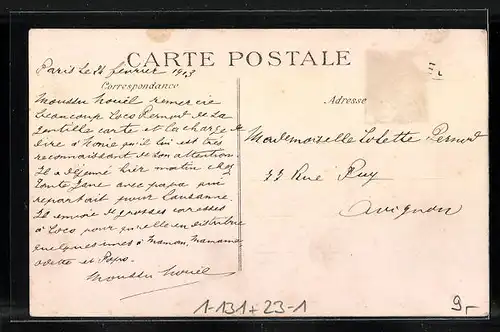 CARTE POSTALE
Paris le 24 février 1913
Correspondance
Adresse
Moussu Nouël remercie
beaucoup Coco Pernod de sa
gentille carte et la charge de
dire à Nonie qu'il lui est très
reconnaissant de son attention.
Il a déjeuné hier matin chez
Tante Jane avec papa qui
repartait pour Lausanne.
Il envoie de grosses caresses
à Coco pour qu'elle en distribue
quelques unes à Maman, Mamame
Odette et Papo.
Moussu Nouël
Mademoiselle Colette Pernod
33 Rue
Avignon
1-131+23-1
9.-